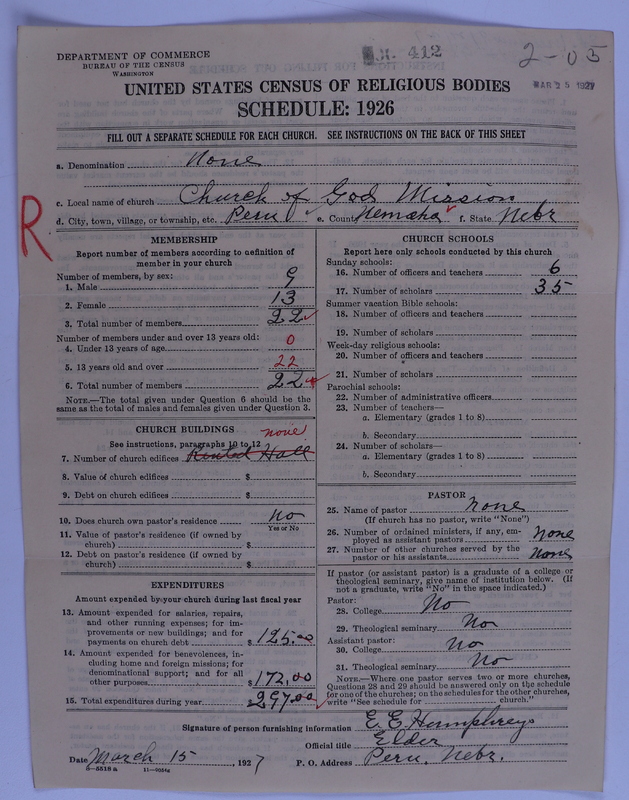 DEPARTMENT OF COMMERCE
BUREAU OF THE CENSUS
WASHINGTON
412
2-03
MAR 25 1927
UNITED STATES CENSUS OF RELIGIOUS BODIES
SCHEDULE: 1926
FILL OUT A SEPARATE SCHEDULE FOR EACH CHURCH. SEE INSTRUCTIONS ON THE BACK OF THIS SHEET
a. Denomination None
c. Local name of church Church of God Mission
d. City, town, village, or township, etc. Peru e. County Nemaha f. State Nebr
R
MEMBERSHIP
Report number of members according to definition of
member in your church
Number of members, by sex:
1. Male 9
2. Female 13
3. Total number of members 22
Number of members under and over 13 years old:
4. Under 13 years of age 0
5. 13 years old and over 22
6. Total number of members 22
NOTE.—The total given under Question 6 should be
same as the total of males and females given under Question 3.
CHURCH BUILDINGS none
See instructions, paragraphs 10 to 12
7. Number of church edifices Rented Hall
8. Value of church edifices $
9. Debt on church edifices $
10. Does church own pastor's residence No
Yes or No
11. Value of pastor's residence (if owned by
church) $
12. Debt on pastor's residence (if owned by
church) $
EXPENDITURES
Amount expended by your church during last fiscal year
13. Amount expended for salaries, repairs,
and other running expenses; for im-
provements or new buildings; and for
payments on church debt $ 125.00
14. Amount expended for benevolences, in-
cluding home and foreign missions; for
denominational support; and for all
other purposes $ 172.00
15. Total expenditures during year $ 297.00
CHURCH SCHOOLS
Report here only schools conducted by this church
Sunday schools:
16. Number of officers and teachers 6
17. Number of scholars 35
Summer vacation Bible schools:
18. Number of officers and teachers
19. Number of scholars
Week-day religious schools:
20. Number of officers and teachers
21. Number of scholars
Parochial schools:
22. Number of administrative officers
23. Number of teachers—
a. Elementary (grades 1 to 8)
b. Secondary
24. Number of scholars—
a. Elementary (grades 1 to 8)
b. Secondary
PASTOR
25. Name of pastor none
(If church has no pastor, write "None")
26. Number of ordained ministers, if any, em-
ployed as assistant pastors None
27. Number of other churches served by the
pastor or his assistants None
If pastor (or assistant pastor) is a graduate of a college or
theological seminary, give name of institution below. (If
not a graduate, write "No" in the space indicated.)
Pastor:
28. College No
29. Theological seminary No
Assistant pastor:
30. College No
31. Theological seminary No
NOTE.—Where one pastor serves two or more churches,
Questions 28 and 29 should be answered only on the schedule
for one of the churches; on the schedules for the other churches,
write "See schedule for church."
Signature of person furnishing information E. E. Humphreys
Official title Elder
Date March 15, 1927 P. O. Address Peru, Nebr.